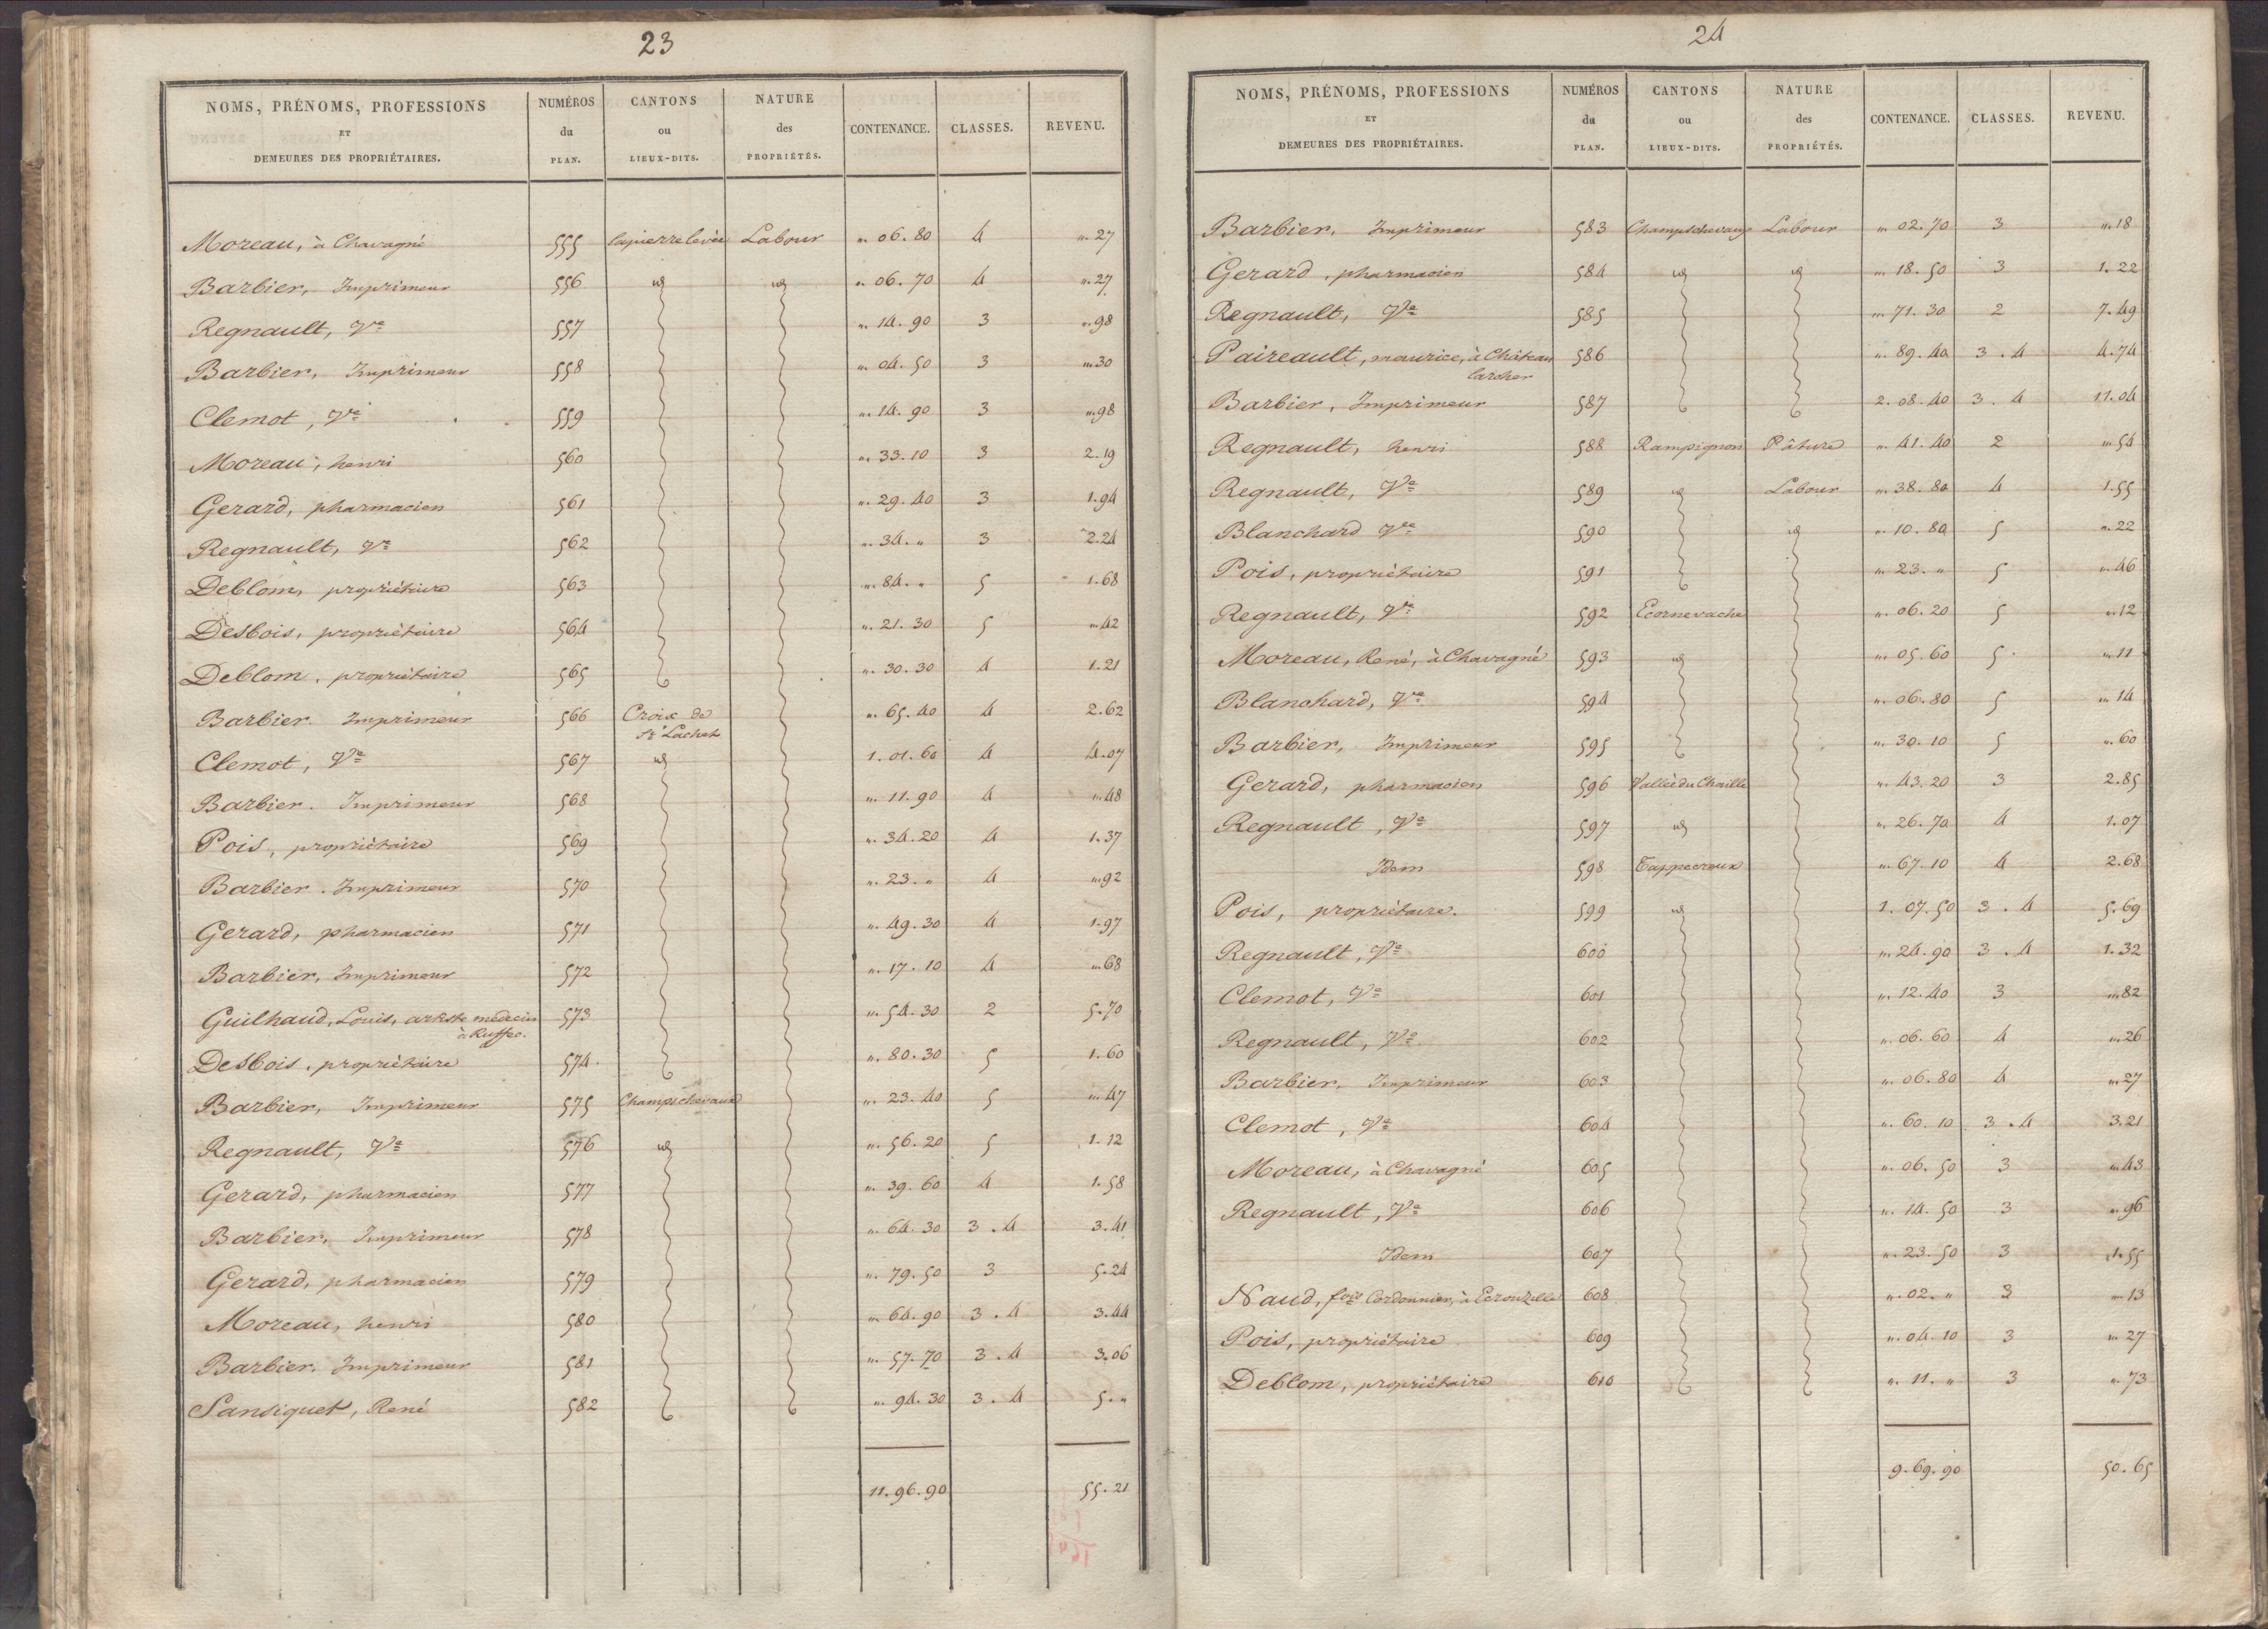 23
NOMS, PRÉNOMS, PROFESSIONS ET DEMEURES DES PROPRIÉTAIRES. NUMÉROS du PLAN. CANTONS ou LIEUX-DITS. NATURE des PROPRIÉTÉS. CONTENANCE. CLASSES. REVENU.
Moreau, à Chavagné 555 lapierrelevée Labour „. 06. 80 4 „. 27
Barbier, Imprimeur 556 id id „. 06. 70 4 „. 27
Regnault, Ve 557 „. 14. 90 3 „. 98
Barbier, Imprimeur 558 „. 04. 50 3 „. 30
Clemot, Ve 559 „. 14. 90 3 „. 98
Moreau, henri 560 „. 33. 10 3 2. 19
Gerard, pharmacien 561 „. 29. 40 3 1. 94
Regnault, Ve 562 „. 34. „ 3 2. 24
Deblom, propriétaire 563 „. 84. „ 5 1. 68
Desbois, propriétaire 564 „. 21. 30 5 „. 42
Deblom, propriétaire 565 „. 30. 30 4 1. 21
Barbier. Imprimeur 566 Croix de „. 65. 40 4 2. 62
St Lachet
Clemot, Ve 567 id 1. 01. 60 4 4. 07
Barbier. Imprimeur 568 „. 11. 90 4 „. 48
Pois, propriétaire 569 „. 34. 20 4 1. 37
Barbier. Imprimeur 570 „. 23. „ 4 „. 92
Gerard, pharmacien 571 „. 49. 30 4 1. 97
Barbier, Imprimeur 572 „. 17. 10 4 „. 68
Guilhaud, Louis, artiste médecin 573 „. 54. 30 2 5. 70
à Ruffec.
Desbois, propriétaire 574 „. 80. 30 5 1. 60
Barbier, Imprimeur 575 Champschevaux „. 23. 40 5 „. 47
Regnault, Ve 576 id „. 56. 20 5 1. 12
Gerard, pharmacien 577 „. 39. 60 4 1. 58
Barbier, Imprimeur 578 „. 64. 30 3. 4 3. 41
Gerard, pharmacien 579 „. 79. 50 3 5. 24
Moreau, henri 580 „. 64. 90 3. 4 3. 44
Barbier. Imprimeur 581 „. 57. 70 3. 4 3. 06
Sansiquet, René 582 „. 94. 30 3. 4 5. „
11. 96. 90 55. 21
24
NOMS, PRÉNOMS, PROFESSIONS ET DEMEURES DES PROPRIÉTAIRES. NUMÉROS du PLAN. CANTONS ou LIEUX-DITS. NATURE des PROPRIÉTÉS. CONTENANCE. CLASSES. REVENU.
Barbier, Imprimeur 583 Champschevaux Labour „. 02. 70 3 „. 18
Gerard, pharmacien 584 id id „. 18. 50 3 1. 22
Regnault, Ve 585 „. 71. 30 2 7. 49
Paireault, maurice, à Château 586 „. 89. 40 3. 4 4. 74
larcher
Barbier, Imprimeur 587 2. 08. 40 3. 4 11. 04
Regnault, henri 588 Rampignon Pâture „. 41. 40 2 „. 54
Regnault, Ve 589 id Labour „. 38. 80 4 1. 55
Blanchard Ve 590 id „. 10. 80 5 „. 22
Pois, propriétaire 591 „. 23. „ 5 „. 46
Regnault, Ve 592 Ecornevache „. 06. 20 5 „. 12
Moreau, René, à Chavagné 593 id „. 05. 60 5 „. 11
Blanchard, Ve 594 „. 06. 80 5 „. 14
Barbier, Imprimeur 595 „. 30. 10 5 „. 60
Gerard, pharmacien 596 Vallée du Chaille „. 43. 20 3 2. 85
Regnault, Ve 597 id „. 26. 70 4 1. 07
Idem 598 Tappecroux „. 67. 10 4 2. 68
Pois, propriétaire. 599 id 1. 07. 50 3. 4 5. 69
Regnault, Ve 600 „. 24. 90 3. 4 1. 32
Clemot, Ve 601 „. 12. 40 3 „. 82
Regnault, Ve 602 „. 06. 60 4 „. 26
Barbier, Imprimeur 603 „. 06. 80 4 „. 27
Clemot, Ve 604 „. 60. 10 3. 4 3. 21
Moreau, à Chavagné 605 „. 06. 50 3 „. 43
Regnault, Ve 606 „. 14. 50 3 „. 96
Idem 607 „. 23. 50 3 1. 55
Naud, fois Cordonnier, à Ecrouzelle 608 „. 02. „ 3 „. 13
Pois, propriétaire 609 „. 04. 10 3 „. 27
Deblom, propriétaire 610 „. 11. „ 3 „. 73
9. 69. 90 50. 65